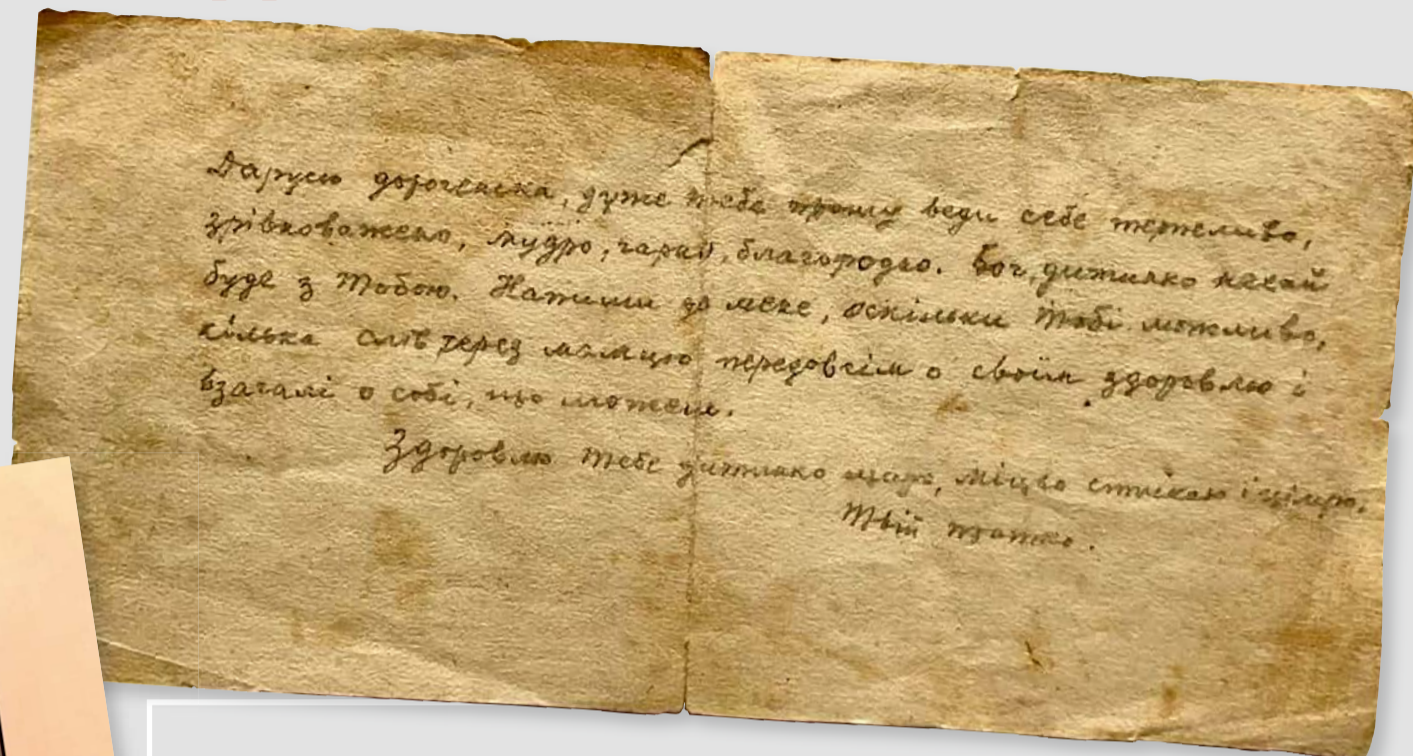 Дарусю дорогенька, дуже тебе прошу веди себе терпеливо,
зрівноважено, мудро, гарно, благородно. Бог, дитинко нехай
буде з Тобою. Напиши до мене, оскільки Тобі можливо,
кілька слів через мамцю передовсім о своїм здоровлю і
взагалі о собі, що можеш.
Здоровлю Тебе дитинко щиро, міцно стискаю і цілую.
Твій татко.